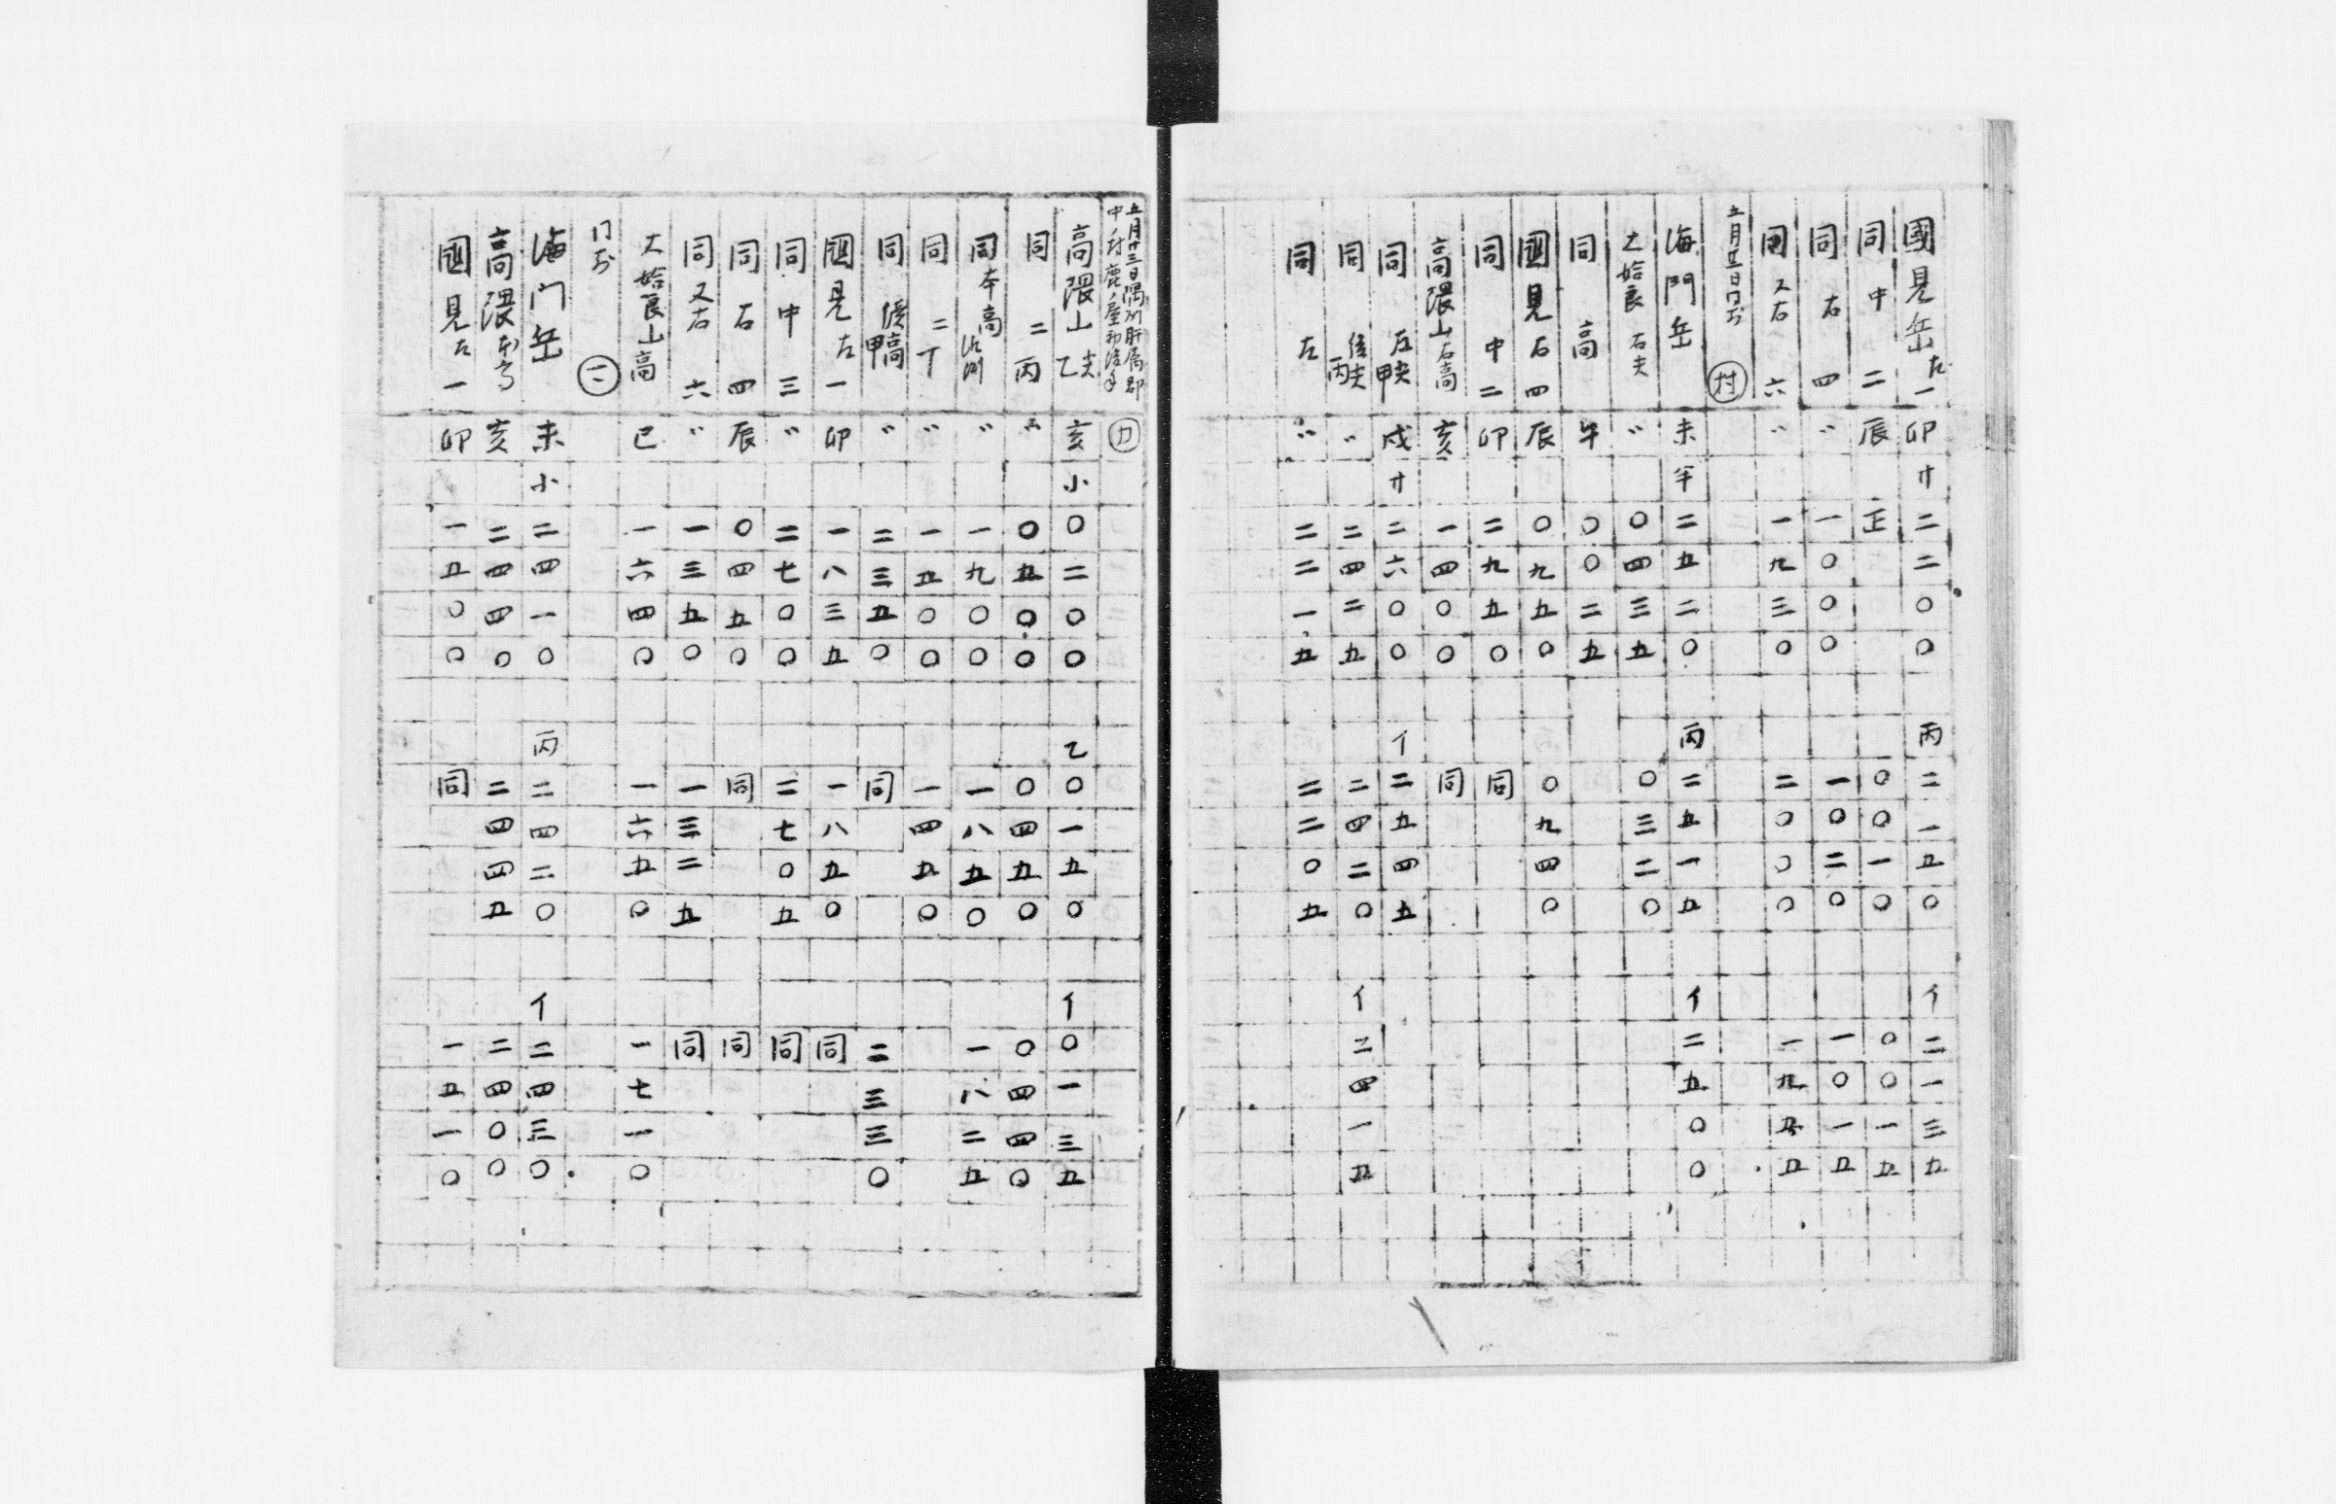 國見岳左一 卯 サ 二二〇〇 丙 二一五〇 イ 二一三五
同中二 辰 正 〇〇一〇 〇〇一五
同右四 〃 一〇〇〇 一〇二〇 一〇一五
同又右六 〃 一九三〇 二〇〇〇 一九五五
海門岳 未 半 二五二〇 丙 二五一五 イ 二五〇〇
大姶良右夫 〃 〇四三五 〇三二〇
同高 午 〇〇二五
國見右四 辰 〇九五〇 〇九四〇
同中二 卯 二九五〇 同
高隈山右高 亥 一四〇〇 同
同左夫甲 戌 サ 二六〇〇 イ 二五四五
同後夫丙 〃 二四二五 二四二〇 イ 二四一五
同左 〃 二二一五 二二〇五
五月廿三日隅州肝属郡
高隈山夫乙 亥 小 〇二〇〇 乙 〇一五〇 イ 〇一三五
同二丙 〃 〇五〇〇 〇四五〇 〇四四〇
同本高 〃 一九〇〇 一八五〇 一八二五
同二丁 〃 一五〇〇 一四五〇
同後高甲 〃 二三五〇 同 二三三〇
國見左一 卯 一八三五 一八五〇 同
同中三 〃 二七〇〇 二七〇五 同
同右四 辰 〇四五〇 同 同
同又右六 〃 一三五〇 一三二五 同
大姶良山高 巳 一六四〇 一六五〇 一七一〇
海门岳 未 小 二四一〇 丙 二四二〇 イ 二四三〇
高隈 亥 二四四〇 二四四五 二四〇〇
國見左一 卯 一五〇〇 同 一五一〇